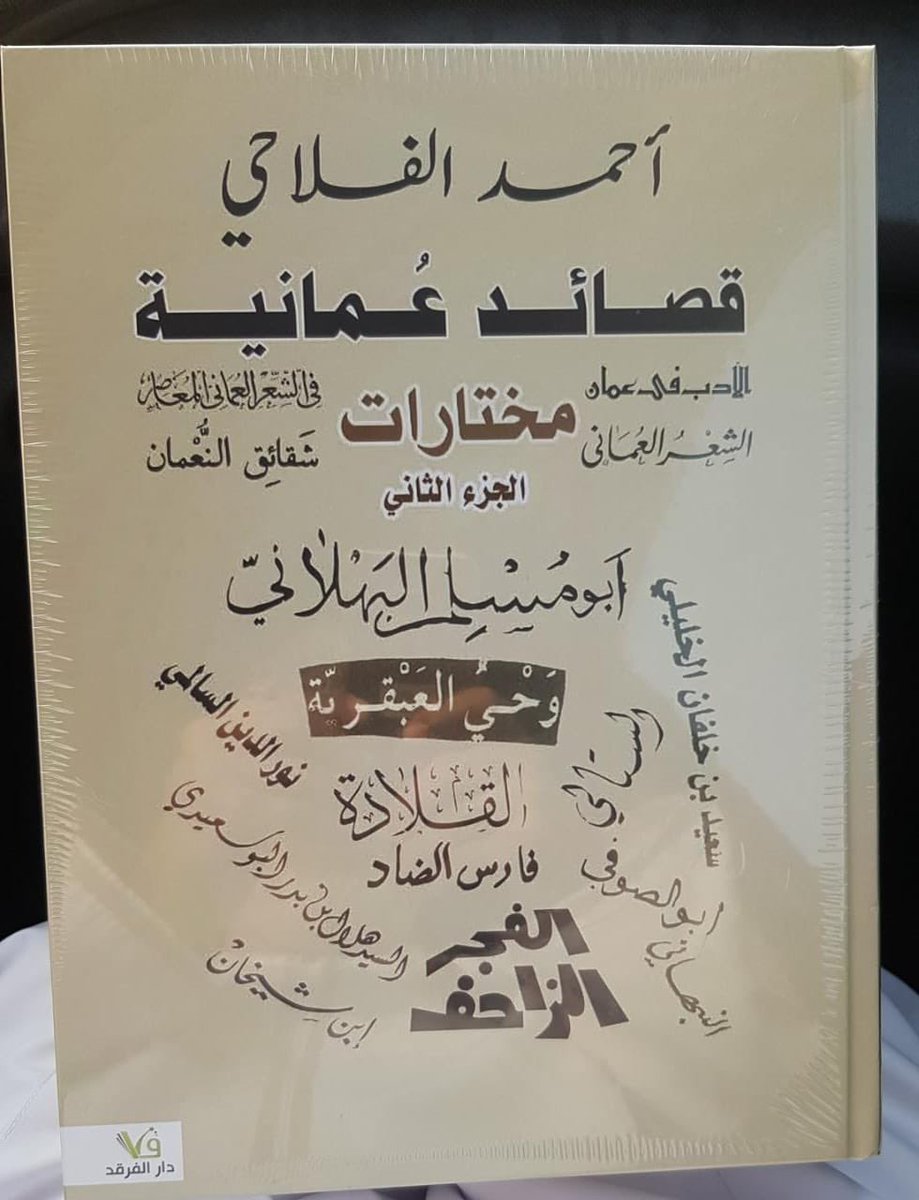 أحمد الفلاحي
قصائد عُمانية
الأدب في عمان
في الشعر العماني المعاصر
مختارات
الشعر العماني
شَقائِق النُّعْمان
الجزء الثاني
أبو مسلم البهلاني
سعيد بن خلفان الخليلي
وَحْيُ العَبْقَرِيَّة
نور الدين السالمي
الستالي
القلادة
فارس الضاد
السيد هلال بن بدر البوسعيدي
أبو الصوفي
الفجر
الزاحف
ابن شيخان
النبهاني
دار الفرقد